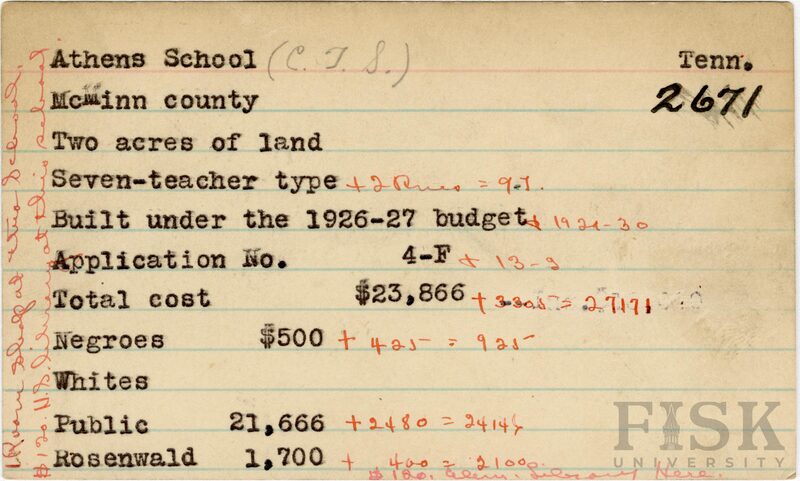 Athens School (C. T. S.) Tenn.
McMinn county 2671
Two acres of land
Seven-teacher type + 2 Rms = 9-T.
Built under the 1926-27 budget + 1929-30
Application No. 4-F + 13-J
Total cost $23,866 + 3305 = 27171
Negroes $500 + 425 = 925
Whites
Public 21,666 + 2480 = 24146
Rosenwald 1,700 + 400 = 2100
$120. Elem. Library Here.
1 Room Shop at this School.
$120. H.S. Library at this school
FISK
UNIVERSITY